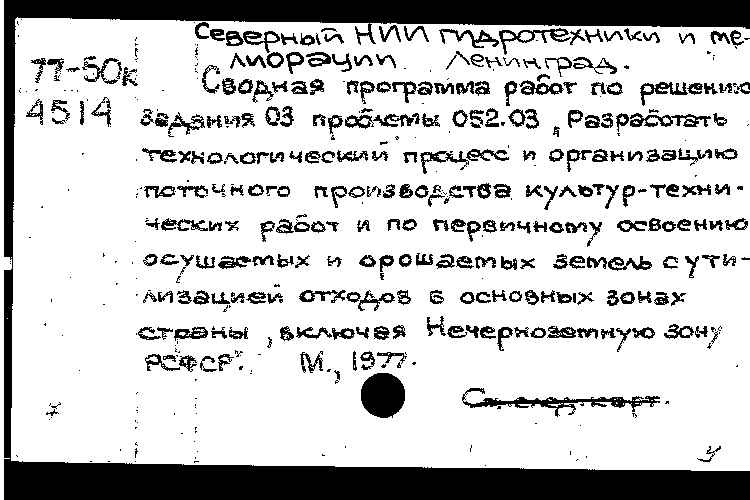 Северный НИИ гидротехники и ме-
лиорации. Ленинград.
77-50к
4514
Сводная программа работ по решению
задания 03 проблемы 052.03 „Разработать
технологический процесс и организацию
поточного производства культур-техни-
ческих работ и по первичному освоению
осушаемых и орошаемых земель с ути-
лизацией отходов в основных зонах
страны, включая Нечерноземную зону
РСФСР". М., 1977.
См. след. карт.